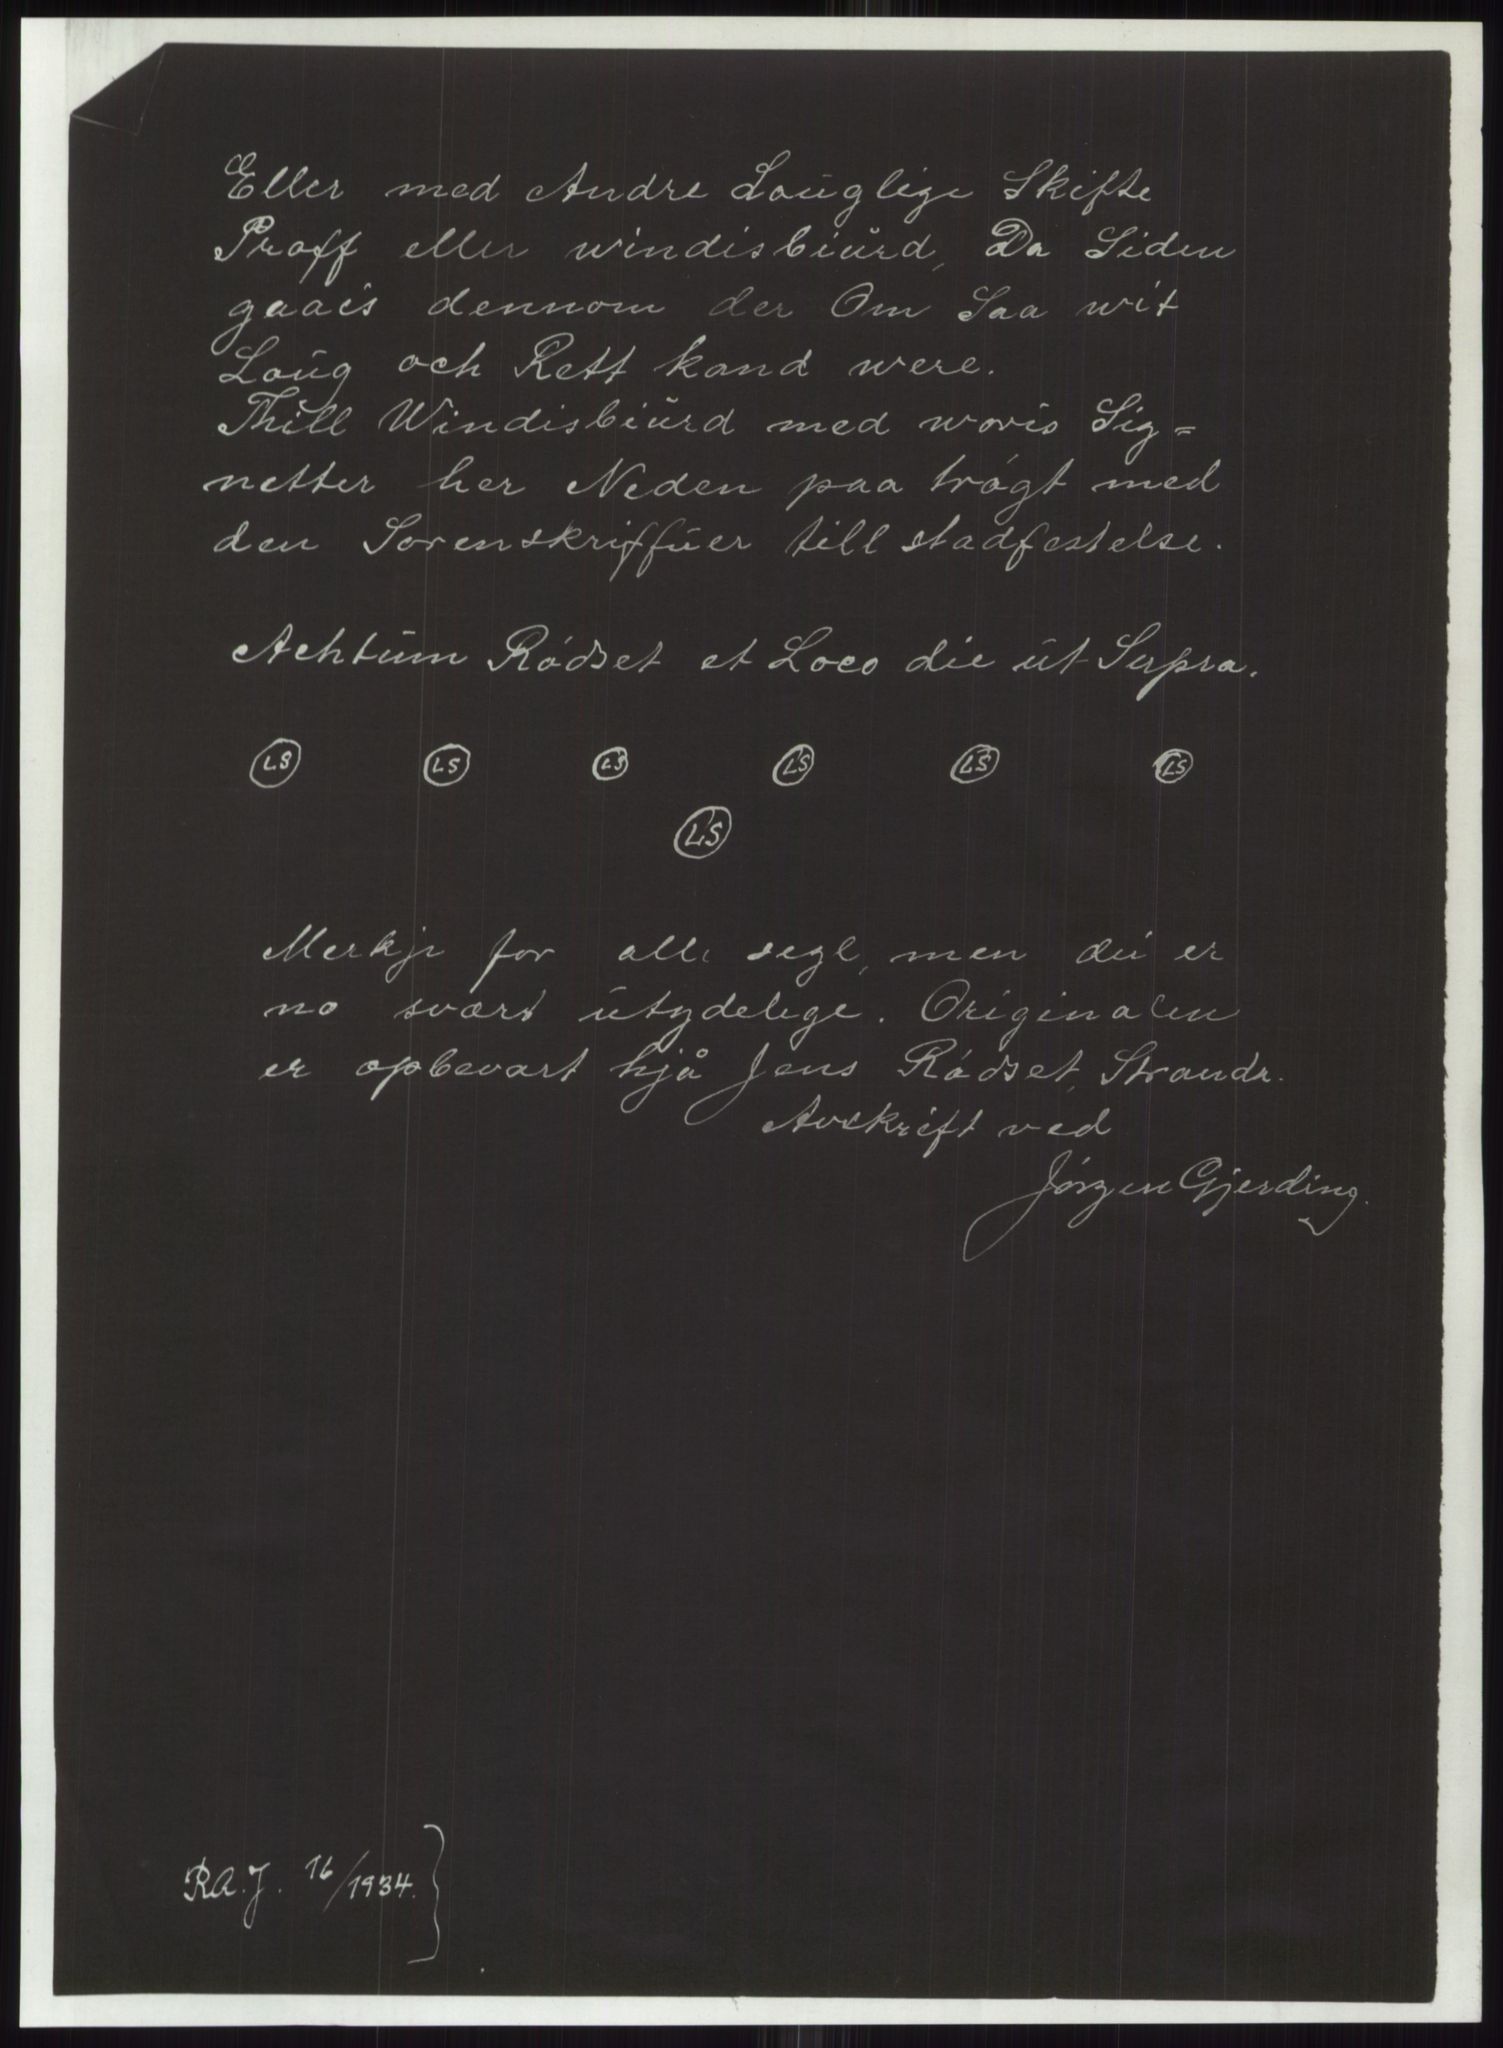 Eller med Andre Loŭglige Skifte
Proff eller windisbiŭrd, Da Siden
gaais dennom der Om Saa wit
Loŭg och Rett kand were.
Thill Windisbiŭrd med woris Sig=
netter her Neden paa trógt med
den Sorenskriffŭer till stadfestelse.
Achtŭm Ródset et Loco die ŭt Supra.
LS LS LS LS LS LS
LS
Merkje for alle segl, men dei er
no svært ŭtydelege. Originalen
er opbevart hjå Jens Ródset, Strandr.
Avskrift ved
Jórgen Gjerding.
RA. J. 16/1934.